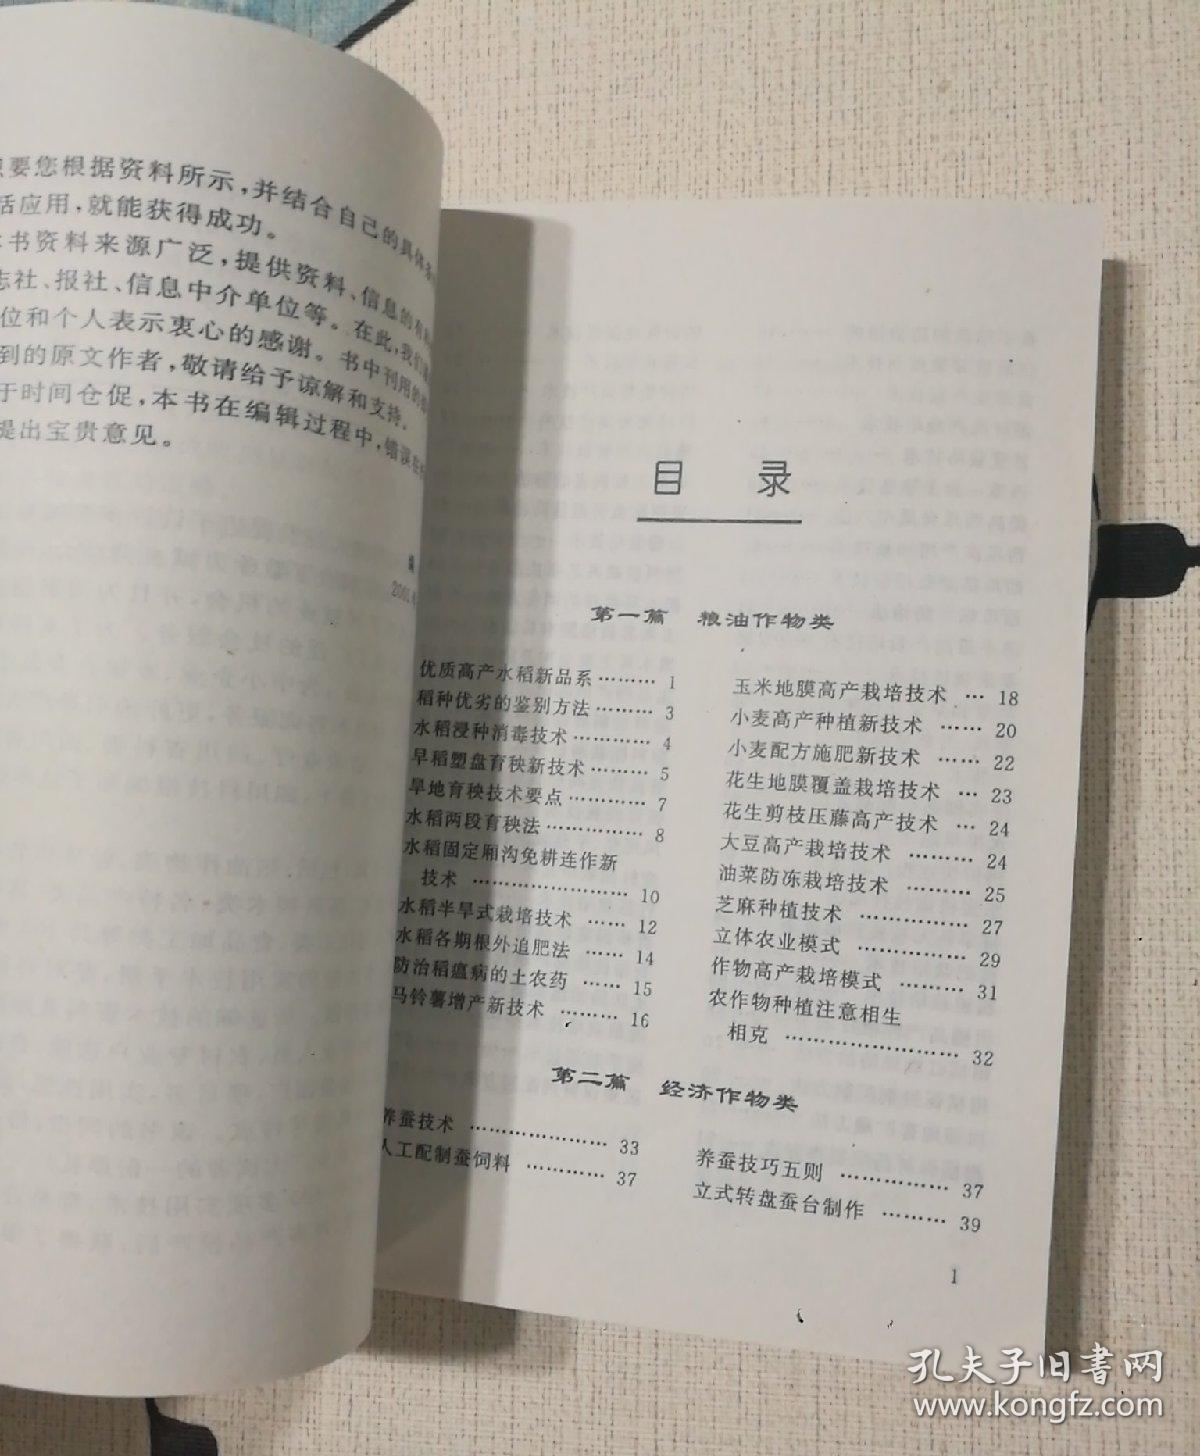 要您根据资料所示，并结合自己的具体
活应用，就能获得成功。
书资料来源广泛，提供资料、信息的有
志社、报社、信息中介单位等。在此，我们
位和个人表示衷心的感谢。书中刊用的
到的原文作者，敬请给予谅解和支持。
于时间仓促，本书在编辑过程中，错误在
提出宝贵意见。
目 录
第一篇 粮油作物类
优质高产水稻新品系 ……… 1
稻种优劣的鉴别方法 ……… 3
水稻浸种消毒技术 ………… 4
早稻塑盘育秧新技术 ……… 5
旱地育秧技术要点 ………… 7
水稻两段育秧法 …………… 8
水稻固定厢沟免耕连作新
技术 …………………… 10
水稻半旱式栽培技术 …… 12
水稻各期根外追肥法 …… 14
防治稻瘟病的土农药 …… 15
马铃薯增产新技术 ……… 16
玉米地膜高产栽培技术 … 18
小麦高产种植新技术 …… 20
小麦配方施肥新技术 …… 22
花生地膜覆盖栽培技术 … 23
花生剪枝压藤高产技术 … 24
大豆高产栽培技术 ……… 24
油菜防冻栽培技术 ……… 25
芝麻种植技术 …………… 27
立体农业模式 …………… 29
作物高产栽培模式 ……… 31
农作物种植注意相生
相克 ……………………… 32
第二篇 经济作物类
养蚕技术 ………………… 33
人工配制蚕饲料 ………… 37
养蚕技巧五则 …………… 37
立式转盘蚕台制作 ……… 39
1
孔夫子旧书网
www.kongfz.com